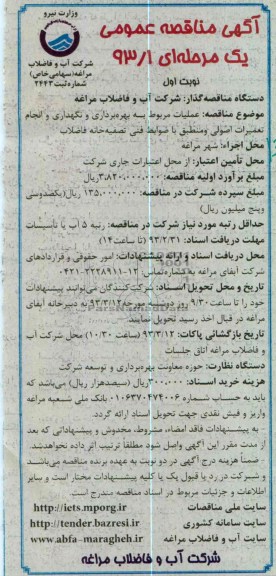 وزارت نیرو
شرکت آب و فاضلاب
مراغه (سهامی خاص)
شماره ثبت ۲۴۴۳
آگهی مناقصه عمومی
یک مرحله‌ای ۹۳/۱
نوبت اول
دستگاه مناقصه‌گذار: شرکت آب و فاضلاب مراغه
موضوع مناقصه: عملیات مربوط به بهره‌برداری و نگهداری و انجام
تعمیرات اصولی ومنطبق با ضوابط فنی تصفیه‌خانه فاضلاب
محل اجراء: شهر مراغه
محل تأمین اعتبار: از محل اعتبارات جاری شرکت
مبلغ برآورد اولیه مناقصه: ۳,۸۲۰,۰۰۰,۰۰۰ریال
مبلغ سپرده شرکت در مناقصه: ۱۳۵,۰۰۰,۰۰۰ ریال(یکصدوسی
وپنج میلیون ریال)
حداقل رتبه مورد نیاز شرکت در مناقصه: رتبه ۵ آب یا تأسیسات
مهلت دریافت اسناد: ۹۳/۲/۳۱ (تا ساعت۱۴)
محل دریافت اسناد و ارائه پیشنهادات: امور حقوقی و قراردادهای
شرکت آبفای مراغه به شماره تماس: ۱۲-۳۲۲۸۹۱۱-۰۴۲۱
تاریخ و محل تحویل اسناد: شرکت‌کنندگان می‌توانند پیشنهادات
خود را تا ساعت ۹/۳۰ روز دوشنبه مورخه۹۳/۳/۱۲ به دبیرخانه آبفای
مراغه در قبال اخذ رسید تحویل نمایند.
تاریخ بازگشائی پاکات: ۹۳/۳/۱۲ (ساعت ۱۰/۳۰) محل شرکت آب
و فاضلاب مراغه اتاق جلسات
دستگاه نظارت: حوزه معاونت بهره‌برداری و توسعه شرکت
هزینه خرید اسناد: ۳۰۰,۰۰۰ریال (سیصدهزار ریال) می‌باشد که
باید به حساب شماره ۰۱۰۶۳۷۰۴۷۴۰۰۶ بانک ملی شعبه مراغه
واریز و فیش نقدی جهت تحویل اسناد ارائه گردد.
- به پیشنهادات فاقد امضاء، مشروط، مخدوش و پیشنهاداتی که بعد
از مدت مقرر این آگهی واصل شود مطلقاً ترتیب اثر داده نخواهدشد.
- ضمناً هزینه درج آگهی در دو نوبت به عهده برنده مناقصه می‌باشد
و شرکت در رد یا قبول یک یا کلیه پیشنهادات مختار است و سایر
اطلاعات و جزئیات مربوط در اسناد مناقصه مندرج است
سایت ملی مناقصات http://iets.mporg.ir
سایت سامانه کشوری http://tender.bazresi.ir
سایت آب و فاضلاب مراغه www.abfa-maragheh.ir
شرکت آب و فاضلاب مراغه